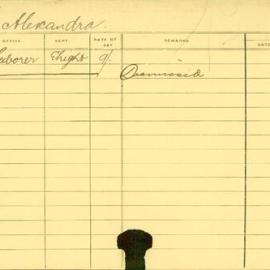 Alexandra
OFFICE. DEPT. RATE OF PAY REMARKS. DATE
Laborer Freight 9/ Dismissed